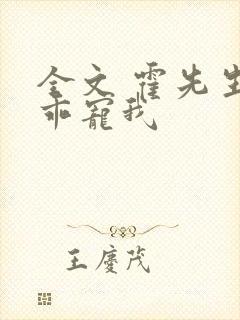 全文 霍先生
乖宠我
王慶茂